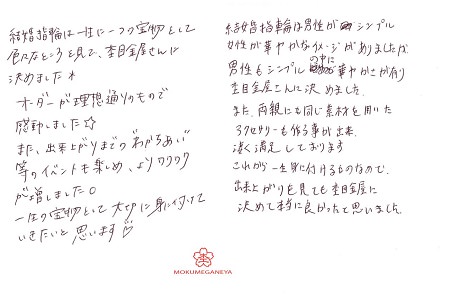 結婚指輪は一生に一つの宝物として
色々なところを見て、杢目金屋さんに
決めました。
オーダーが理想通りのもので
感動しました☆
また、出来上がりまでの"わかちあい"
等のイベントも楽しめ、よりワクワク
が増しました。
一生の宝物として大切に身に付けて
いきたいと思います♡
結婚指輪は男性がシンプル
女性が華やかなイメージがありましたが
男性もシンプルの中に華やかさが有り
杢目金屋さんに決めました。
また、両親にも同じ素材を用いた
アクセサリーも作る事が出来、
凄く満足しております
これから一生身に付けるものなので、
出来上がりを見ても杢目金屋に
決めて本当に良かったと思いました。
MOKUMEGANEYA